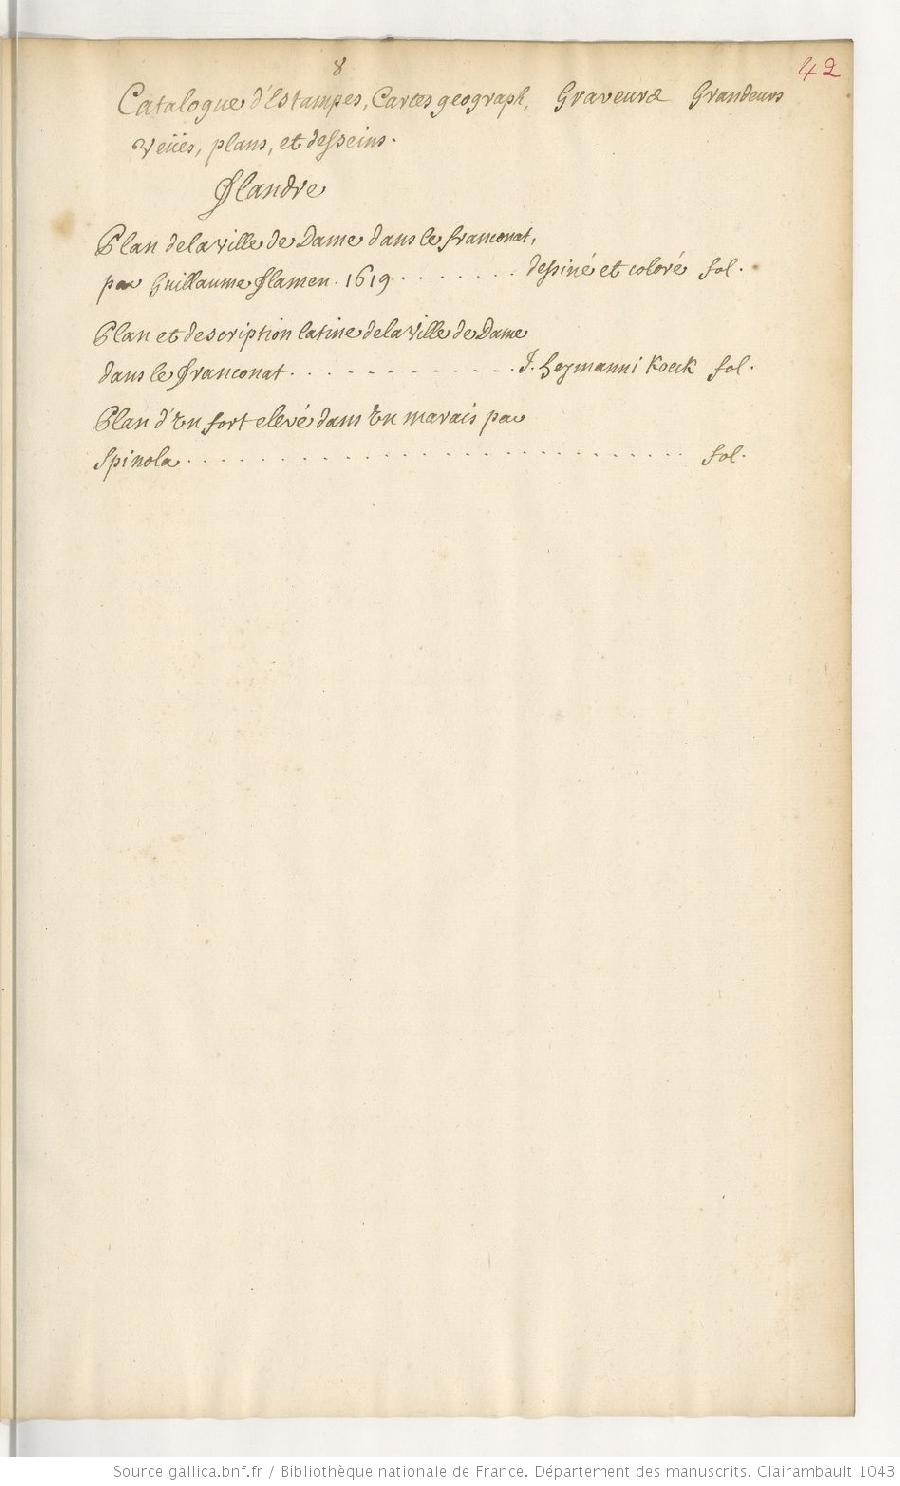 8
42
Catalogue d'Estampes, Cartes geograph. Graveurs Grandeurs
Veües, plans, et desseins.
Flandre
Plan de la ville de Dame dans le franconat,
par Guillaume Flamen. 1619 . . . . . . . dessiné et coloré fol.
Plan et description latine de la Ville de Dame
dans le Franconat . . . . . . . . . . . . J. Heymanni Koeck fol.
Plan d'Un fort elevé dans Un marais par
Spinola . . . . . . . . . . . . . . . . . . . . . . . . . . . . fol.
Source gallica.bnf.fr / Bibliothèque nationale de France. Département des manuscrits. Clairambault 1043